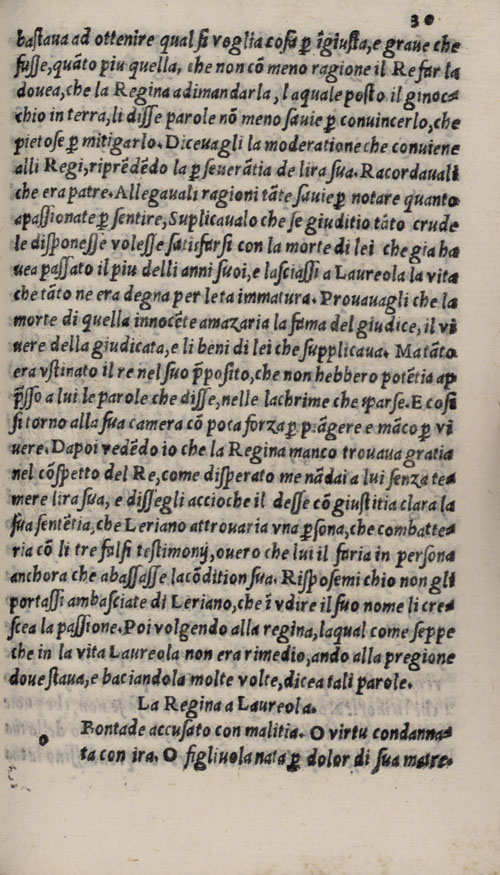 30
bastaua ad ottenire qual si voglia cosa ꝑ ĩgiusta, e graue che
fusse, quãto piu quella, che non cõ meno ragione il Re far la
douea, che la Regina adimandarla, laquale posto il ginoc-
chio in terra, li disse parole nõ meno sauie ꝑ conuincerlo, che
pietose ꝑ mitigarlo. Diceuagli la moderatione che conuiene
alli Regi, riprẽdẽdo la ꝑseuerãtia de lira sua. Racordauali
che era patre. Allegauali ragioni tãte sauie ꝑ notare quanto
apassionate ꝑ sentire, Suplicaualo che se giuditio tãto crude
le disponesse volesse satisfarsi con la morte di lei che gia ha
uea passato il piu delli anni suoi, e lasciassi a Laureola la vita
che tãto ne era degna per leta immatura. Prouauagli che la
morte di quella innocẽte amazaria la fama del giudice, il vi
uere della giudicata, e li beni di lei che supplicaua. Matãto
era vstinato il re nel suo p̃posito, che non hebbero potẽtia ap
p̃sso a lui le parole che disse, nelle lachrime che sparse. E cosi
si torno alla sua camera cõ poca forza ꝑ piãgere e mãco ꝑ vi
uere. Dapoi vedẽdo io che la Regina manco trouaua gratia
nel cõspetto del Re, come disperato me nãdai a lui senza te-
mere lira sua, e dissegli accioche il desse cõ giustitia clara la
sua sentẽtia, che Leriano attrouaria vna ꝑsona, che combatte-
ria cõ li tre falsi testimonij, ouero che lui il faria in persona
anchora che abassasse lacõdition sua. Risposemi chio non gli
portassi ambasciate di Leriano, che ĩ vdire il suo nome li cre-
scea la passione. Poi volgendo alla regina, laqual come seppe
che in la vita Laureola non era rimedio, ando alla pregione
doue staua, e baciandola molte volte, dicea tali parole.
La Regina a Laureola.
o Bontade accusato con malitia. O virtu condanna-
ta con ira. O figliuola nata ꝑ dolor di sua matre.